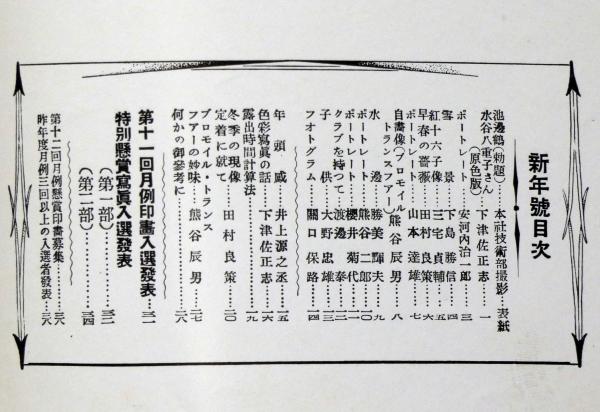 新年號目次
池邊鶴(勅題)…本社技術部撮影…表紙
水谷八重子さん(原色版)下津佐正志…一
ポートレート…安河內治一郎…三
雪景…下島勝信…四
紅十六子像…三宅貞輔…五
早春の薔薇…田村良策…六
ポートレート…山本達雄…七
自畫像(ブロモイルトランスフアー)熊谷辰男…八
水邊…勝美輝夫…九
ポートレート…熊谷二郎…一〇
ポートレート…櫻井菊代…一一
クラブを持つて…渡邊泰…一二
子供…大野忠雄…一三
フオトグラム…關口保路…一四
年頭感…井上源之丞…一五
色彩寫眞の話…下津佐正志…一六
露出時間計算法…一九
冬季の現像定着に就て…田村良策…二〇
ブロモイル・トランスフアーの妙味…熊谷辰男…二七
何かの御參考に…二八
第十一回月例印畫入選發表…三一
特別懸賞寫眞入選發表
(第一部)…三二
(第二部)…三四
第十二回月例懸賞印畫募集…三八
昨年度月例三回以上の入選者發表…三八